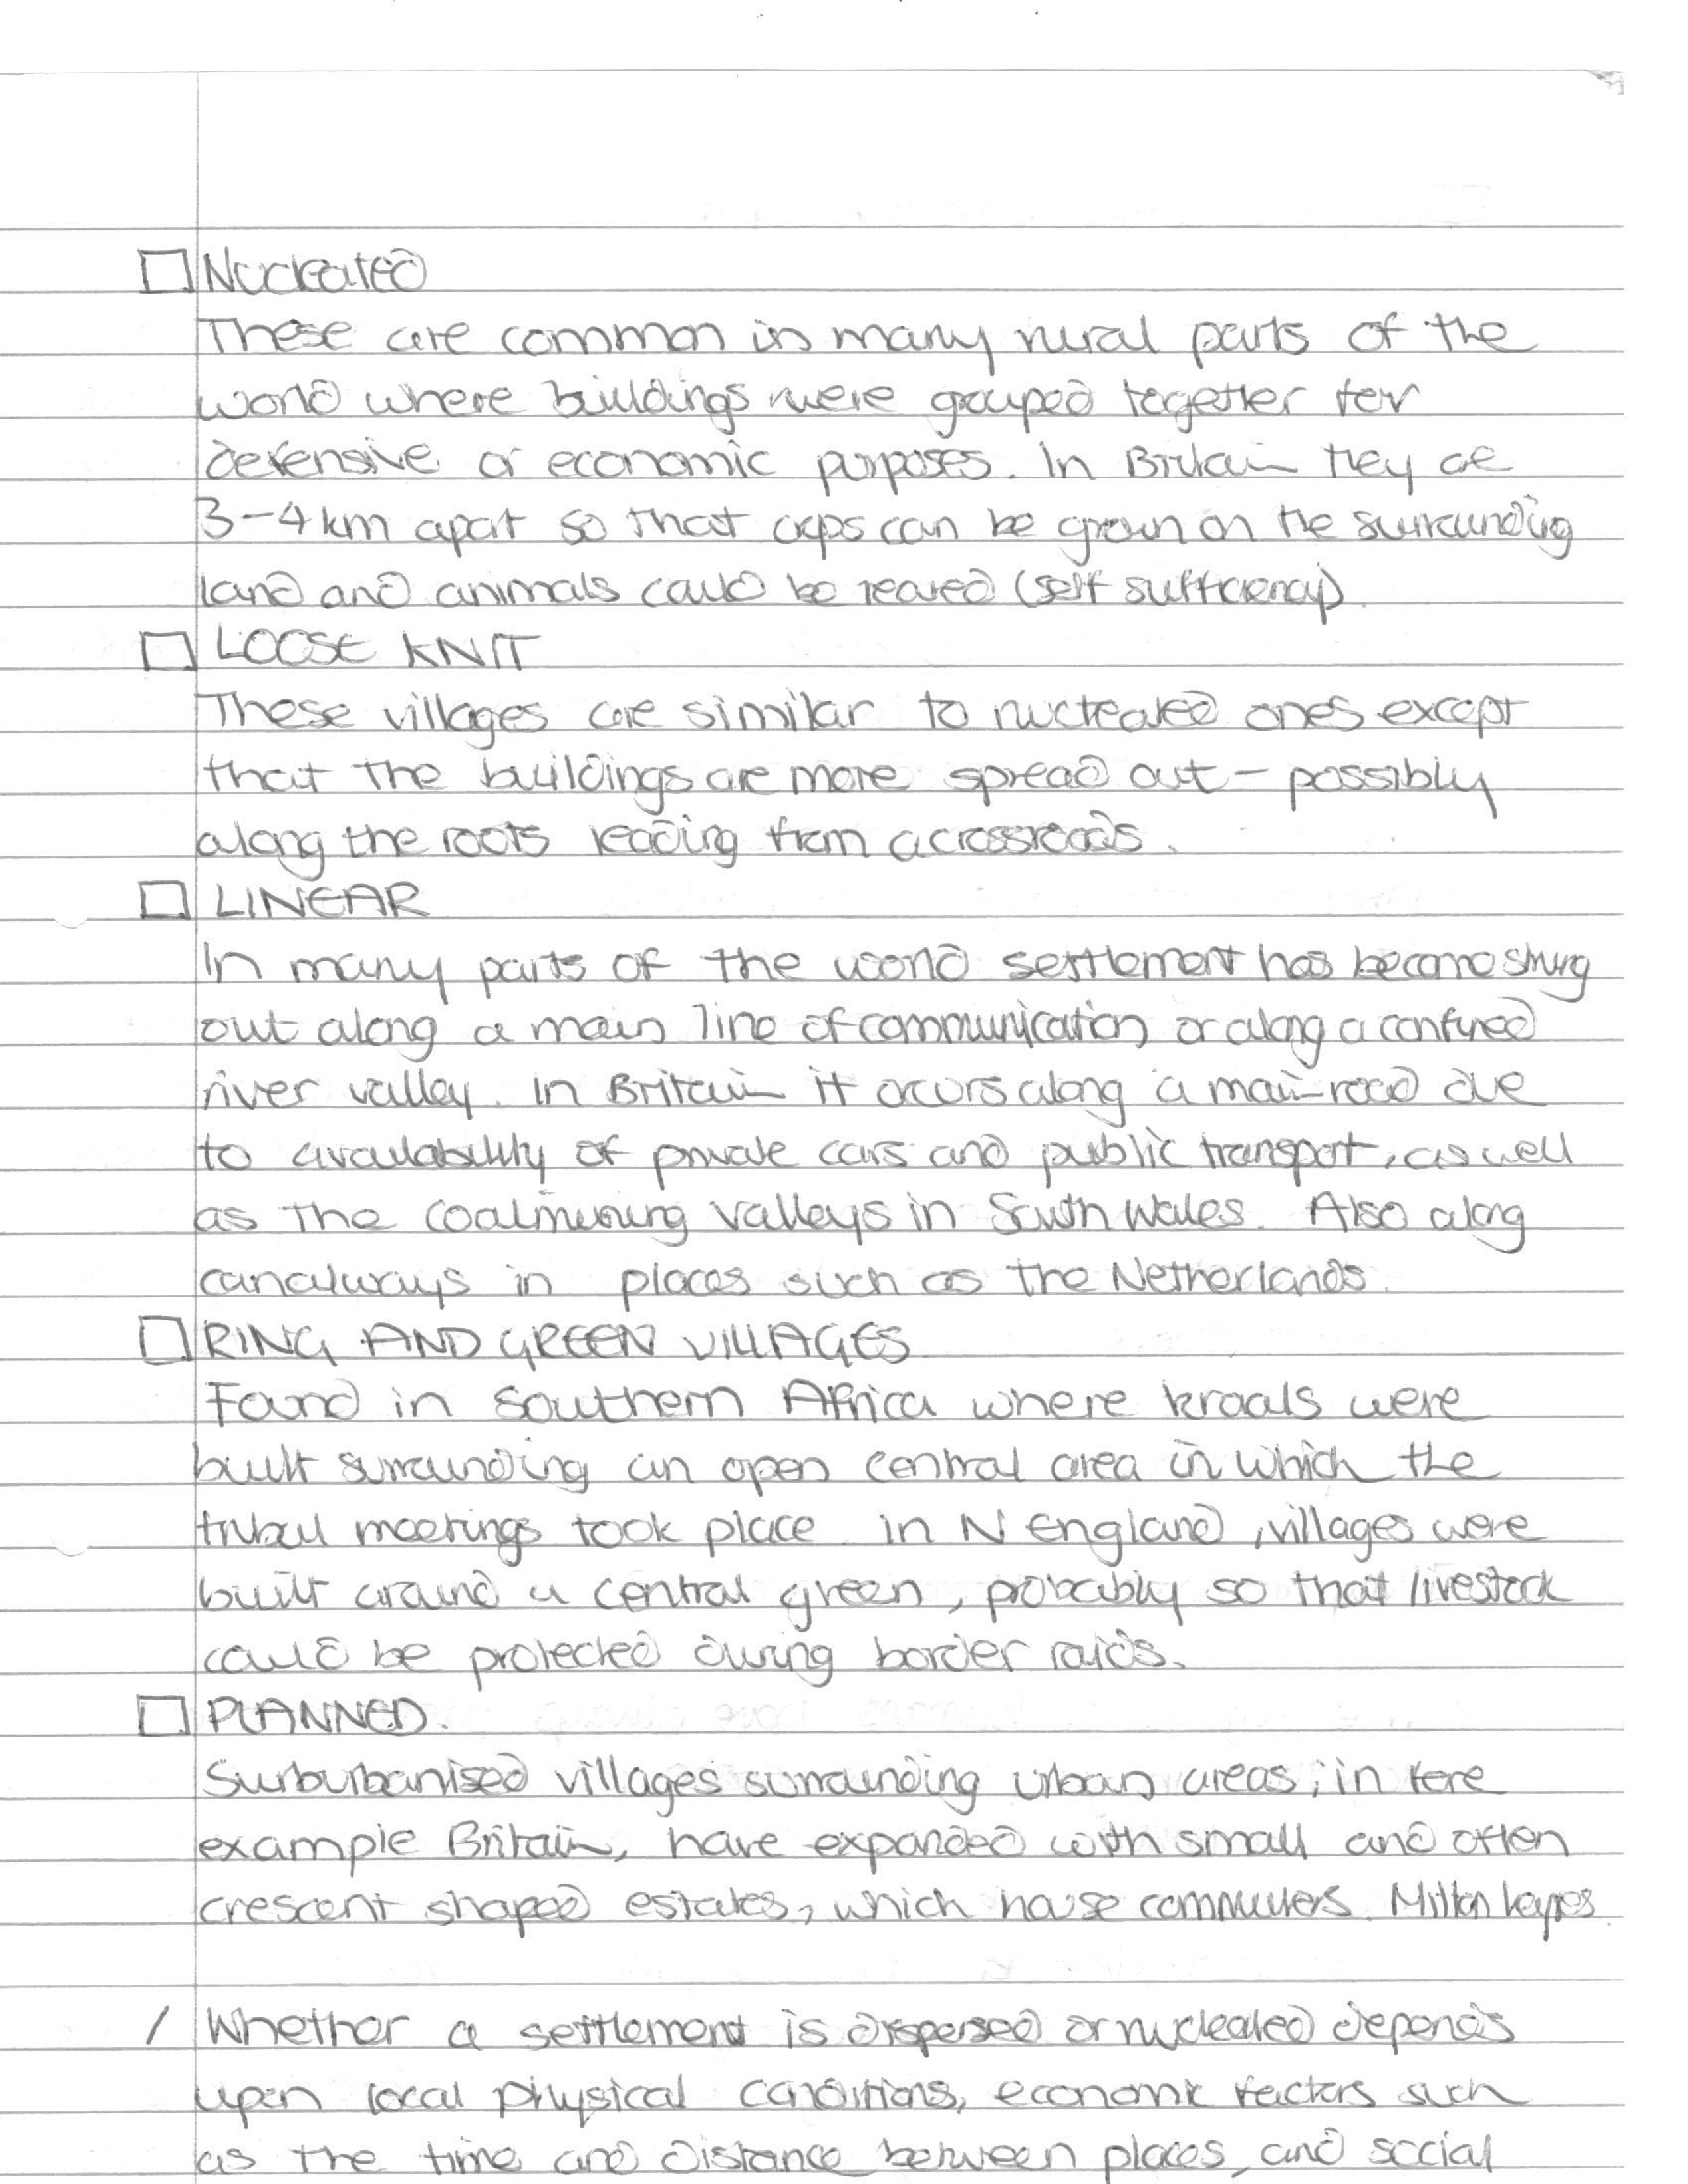 □ Nucleated
These are common in many rural parts of the
world where buildings were grouped together for
defensive or economic purposes. In Britain they are
3-4km apart so that crops can be grown on the surrounding
land and animals could be reared (self sufficiency).
□ LOOSE KNIT
These villages are similar to nucleated ones except
that the buildings are more spread out - possibly
along the roots leading from a crossroads.
□ LINEAR
In many parts of the world settlement has become strung
out along a main line of communication or along a confined
river valley. In Britain it occurs along a main-road due
to availability of private cars and public transport, as well
as the coalmining valleys in South Wales. Also along
canalways in places such as the Netherlands.
□ RING AND GREEN VILLAGES
Found in Southern Africa where kraals were
built surrounding an open central area in which the
tribal meetings took place. In N England, villages were
built around a central green, probably so that livestock
could be protected during border raids.
□ PLANNED.
Surburbanised villages surrounding urban areas; in fere
example Britain, have expanded with small and often
crescent shaped estates, which house commuters. Milton keynes.
/ Whether a settlement is dispersed or nucleated depends
upon local physical conditions, economic factors such
as the time and distance between places, and social